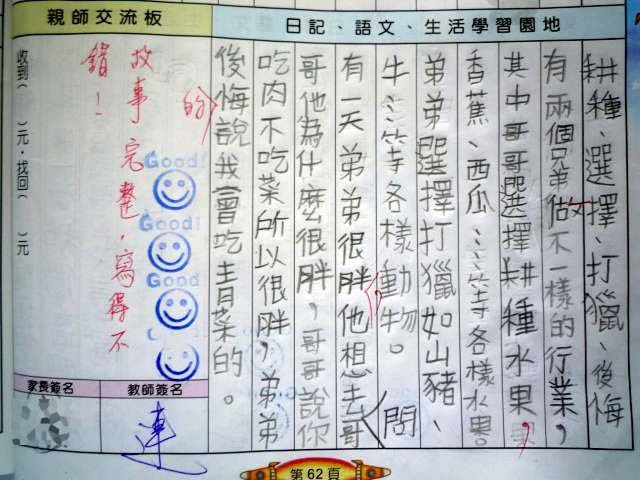 親師交流板
日記、語文、生活學習園地
耕種、選擇、打獵、後悔
有兩個兄弟做不一樣的行業,
其中哥哥選擇耕種水果,
香蕉、西瓜、……等各樣水果。
弟弟選擇打獵如山豬、
牛……等各樣動物。
有一天弟弟很胖他想去哥
問
哥他為什麼很胖,哥哥說你
吃肉不吃菜所以很胖,弟弟
後悔說我會吃青菜的。
的
故事完整,寫得不
錯!
Good!
Good!
Good!
收到( )元,找回( )元
家長簽名
教師簽名
連
第62頁